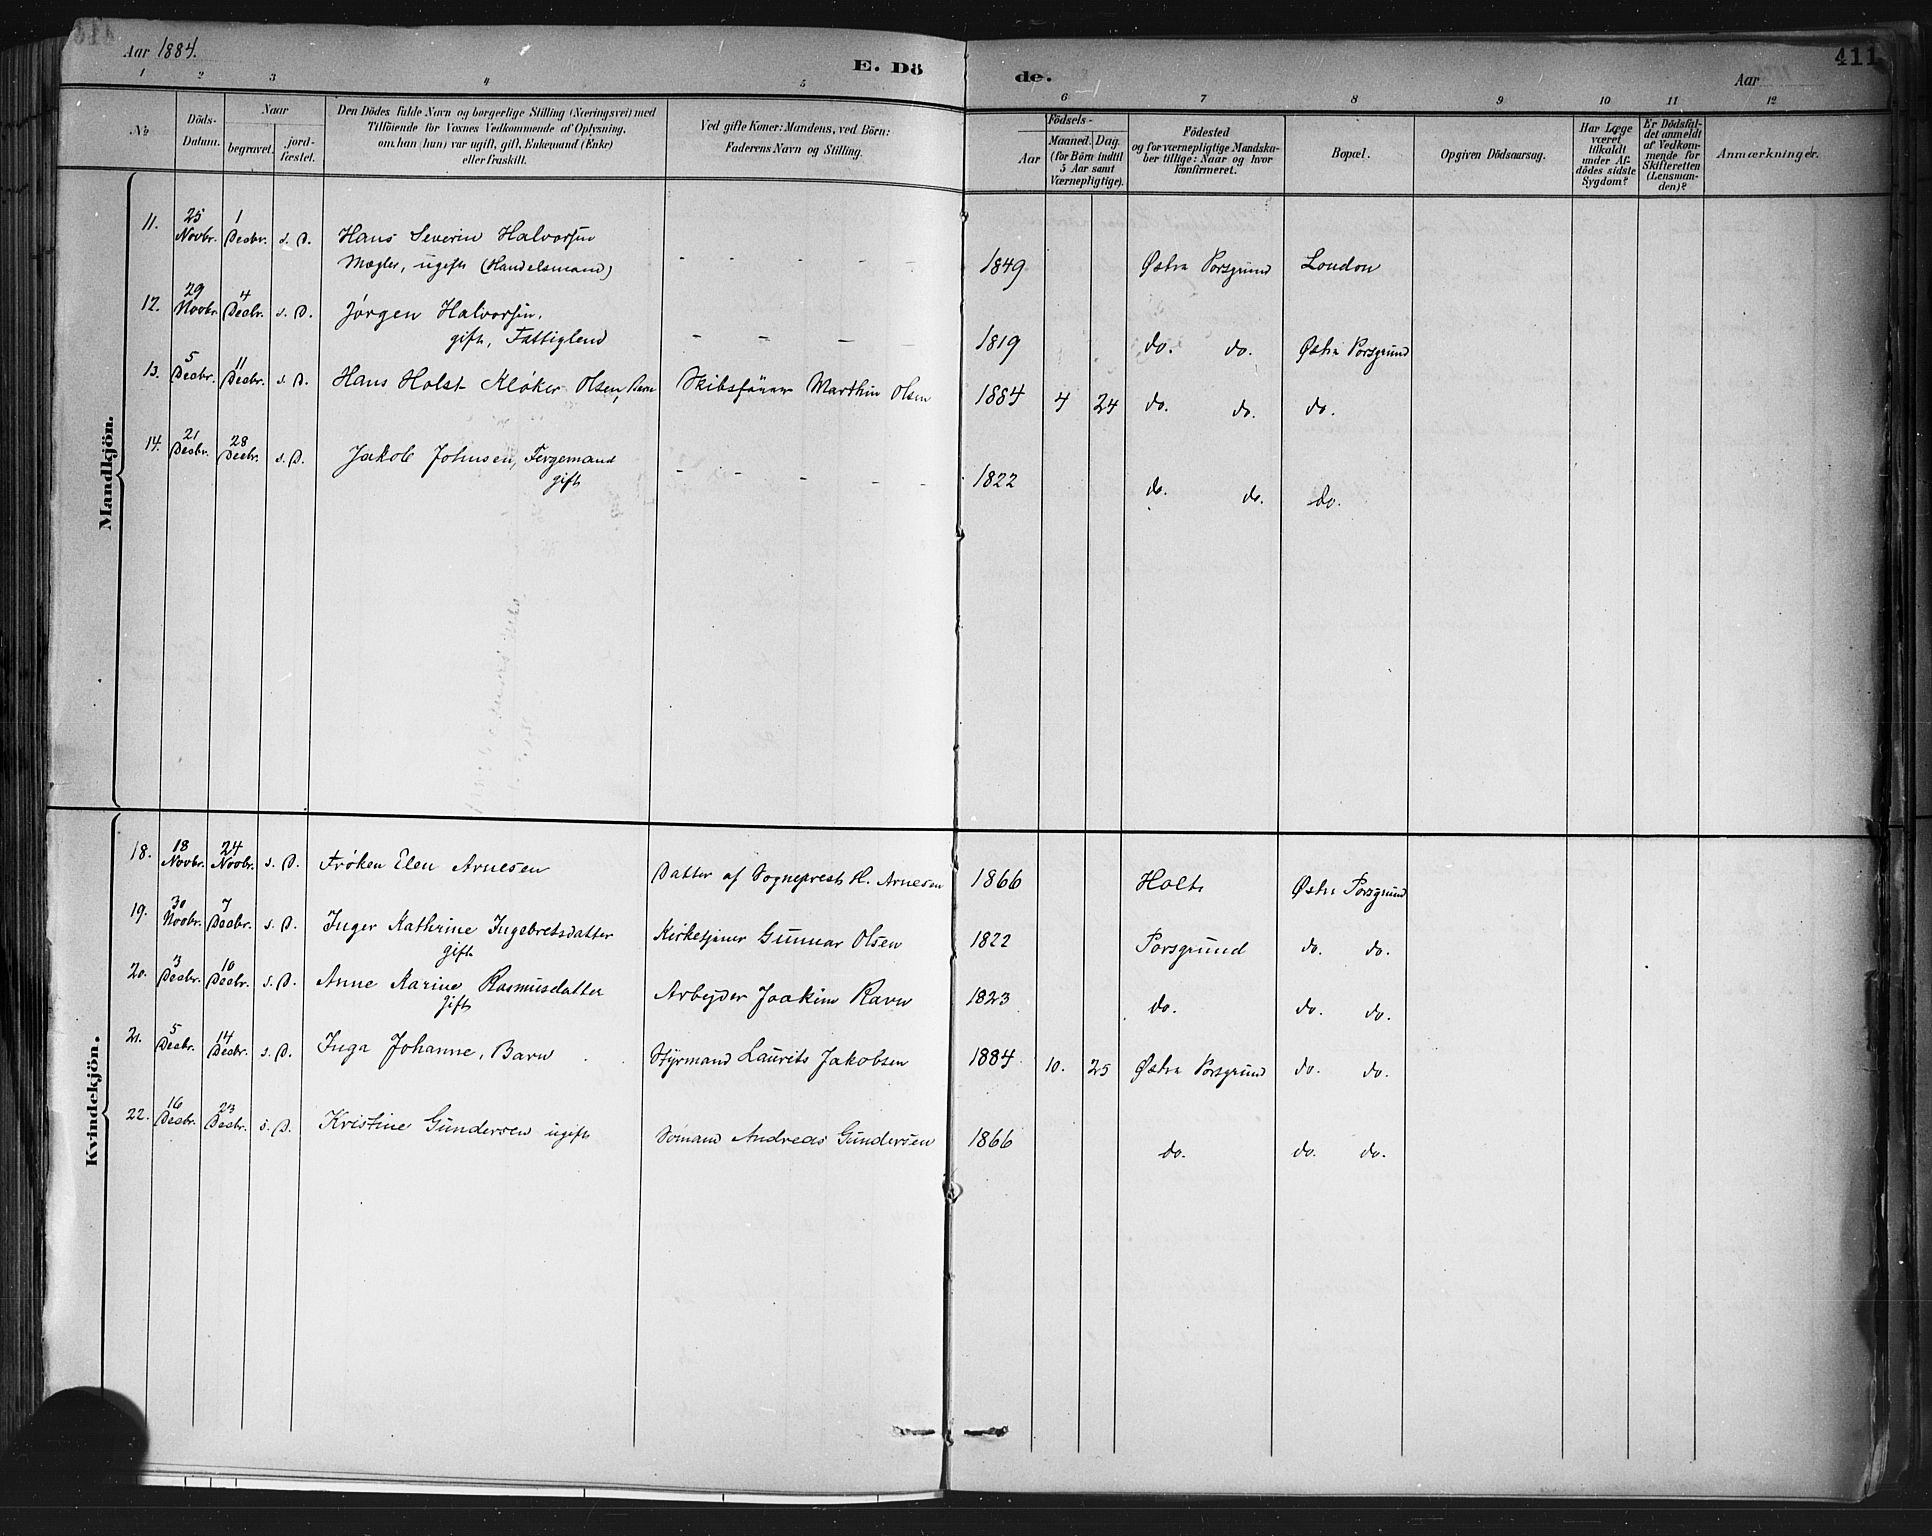 Aar 1884.
E. Dö
de.
Aar
411
1 2 3 4 5 6 7 8 9 10 11 12
№
Döds-Datum.
Naar
begravet.
jord-fæstet.
Den Dödes fulde Navn og borgerlige Stilling (Næringsvei) med
Tilföiende for Voxnes Vedkommende af Oplysning,
om han (hun) var ugift, gift, Enkemand (Enke)
eller fraskilt.
Ved gifte Koner: Mandens, ved Börn:
Faderens Navn og Stilling.
Födsels-
Aar
Maaned. Dag.
(for Börn indtil
5 Aar samt
Værnepligtige).
Födested
og for værnepligtige Mandska-
ber tillige: Naar og hvor
konfirmeret.
Bopæl.
Opgiven Dödsaarsag.
Har Læge
været
tilkaldt
under Af-
dödes sidste
Sygdom?
Er Dödsfal-
det anmeldt
af Vedkom-
mende for
Skifteretten
(Lensman-
den)?
Anmærkninger.
Mandkjön.
11. 25 Novbr. 1 Decbr. s. D. Hans Severin Halvorsen
Mægler, ugift (Handelsmand) - - - - - 1849 Østre Porsgrund London
12. 29 Novbr. 4 Decbr. s. D. Jørgen Halvorsen,
gift, Fattiglem - - - - 1819 do. do. Østre Porsgrund
13. 5 Decbr. 11 Decbr. s. D. Hans Holst Kløker Olsen, Barn Skibsfører Marthin Olsen 1884 4 24 do. do. do.
14. 21 Decbr. 28 Decbr. s. D. Jakob Johnsen, Fergemand
gift - - - - - 1822 do. do. do.
Kvindekjön.
18. 18 Novbr. 24 Novbr. s. D. Frøken Elen Arnesen Datter af Sogneprest H. Arnesen 1866 Holt Østre Porsgrund
19. 30 Novbr. 7 Decbr. s. D. Inger Kathrine Ingebretsdatter
gift Kirketjener Gunnar Olsen 1822 Porsgrund do. do.
20. 3 Decbr. 10 Decbr. s. D. Anne Karine Rasmusdatter
gift Arbejder Joakim Ravn 1823 do. do. do.
21. 5 Decbr. 14 Decbr. s. D. Inga Johanne, Barn Styrmand Laurits Jakobsen 1884 10. 25 Østre Porsgrund do. do.
22. 16 Decbr. 23 Decbr. s. D. Kristine Gundersen ugift Sømand Andreas Gundersen 1866 do. do. do.